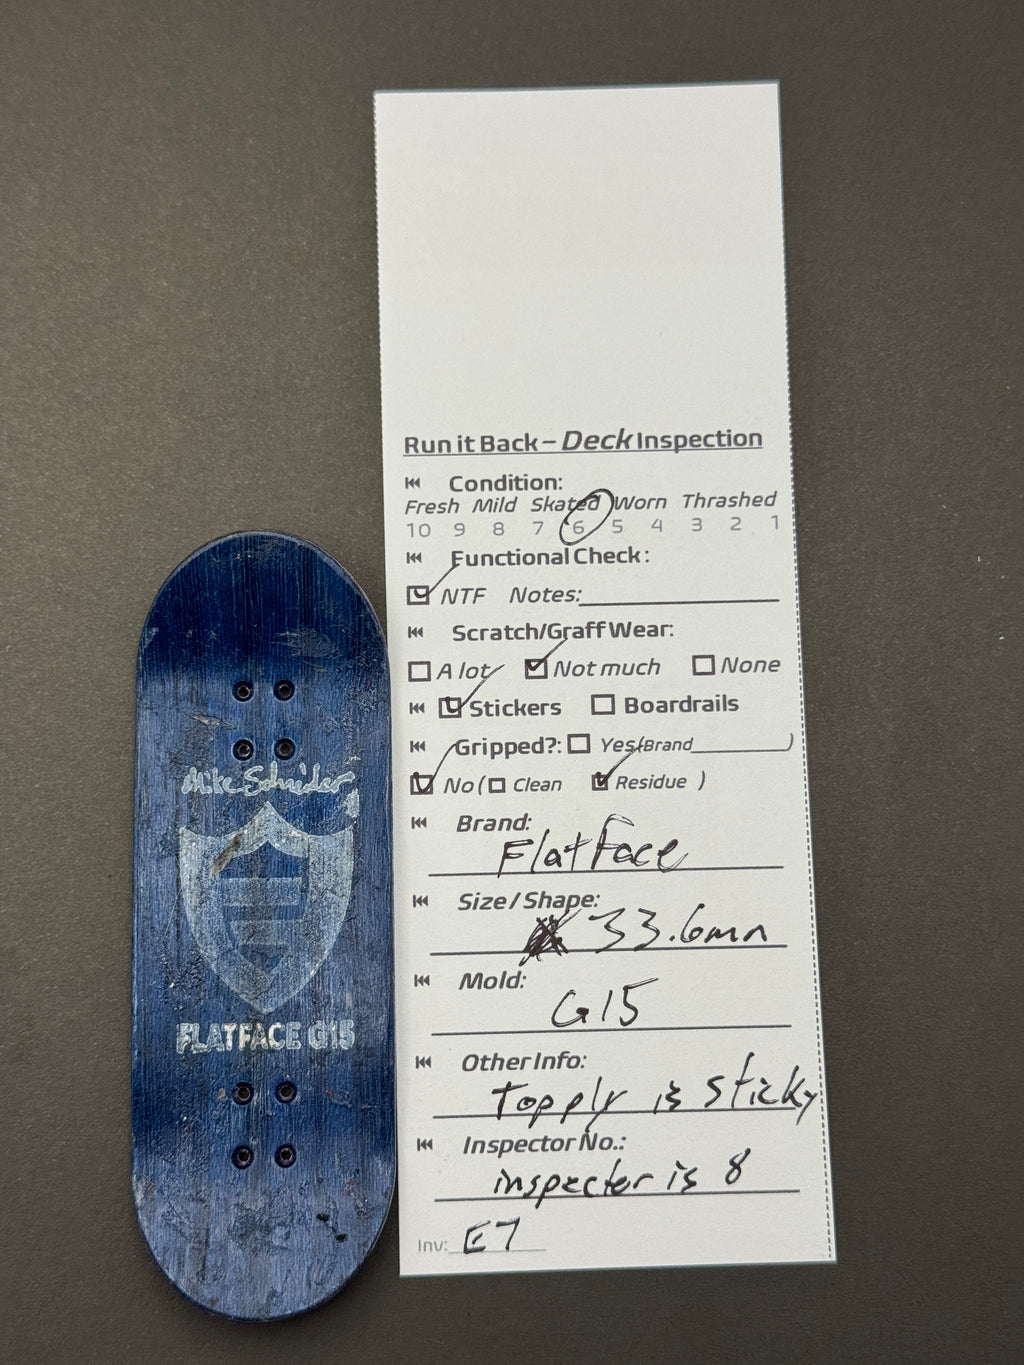 Run it Back – Deck Inspection
Condition:
Fresh Mild Skated Worn Thrashed
10 9 8 7 6 5 4 3 2 1
Functional Check:
NTF Notes:
Scratch/Graff Wear:
A lot Not much None
Stickers Boardrails
Gripped?: Yes(Brand )
No ( Clean Residue )
Brand:
Flatface
Size / Shape:
33.6mm
Mold:
G15
Other Info:
Top ply is sticky
Inspector No.:
inspecter is 8
Inv: E7
Mike Schneider
FLATFACE G15